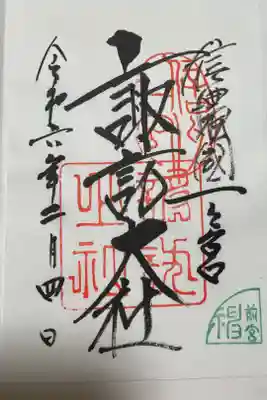 信濃國一之宮
諏訪大社
令和六年二月四日
前宮